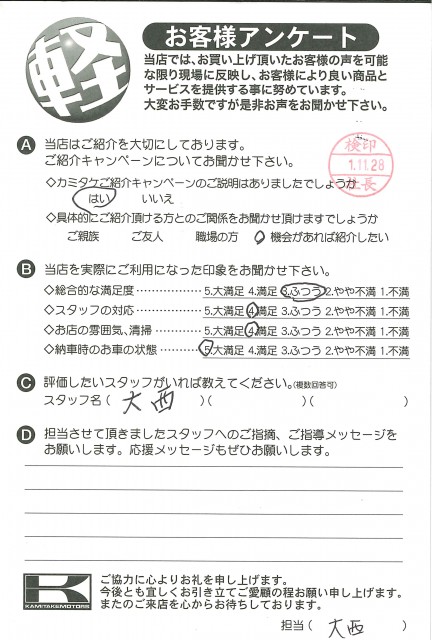 軽
お客様アンケート
当店では、お買い上げ頂いたお客様の声を可能
な限り現場に反映し、お客様により良い商品と
サービスを提供する事に努めています。
大変お手数ですが是非お声をお聞かせ下さい。
A 当店はご紹介を大切にしております。
ご紹介キャンペーンについてお聞かせ下さい。
検印
1.11.28
社長
◇カミタケご紹介キャンペーンのご説明はありましたでしょうか
はい いいえ
◇具体的にご紹介頂ける方とのご関係をお聞かせ頂けますでしょうか
ご親族 ご友人 職場の方 機会があれば紹介したい
B 当店を実際にご利用になった印象をお聞かせ下さい。
◇総合的な満足度 ‥‥‥‥‥‥ 5.大満足 4.満足 3.ふつう 2.やや不満 1.不満
◇スタッフの対応 ‥‥‥‥‥‥ 5.大満足 4.満足 3.ふつう 2.やや不満 1.不満
◇お店の雰囲気、清掃 ‥‥‥‥ 5.大満足 4.満足 3.ふつう 2.やや不満 1.不満
◇納車時のお車の状態 ‥‥‥‥ 5.大満足 4.満足 3.ふつう 2.やや不満 1.不満
C 評価したいスタッフがいれば教えてください。(複数回答可)
スタッフ名( 大西 )( )( )
D 担当させて頂きましたスタッフへのご指摘、ご指導メッセージを
お願いします。応援メッセージもぜひお願いします。
K
KAMITAKEMOTORS
ご協力に心よりお礼を申し上げます。
今後とも宜しくお引き立てご愛顧の程お願い申し上げます。
またのご来店を心からお待ちしております。
担当( 大西 )